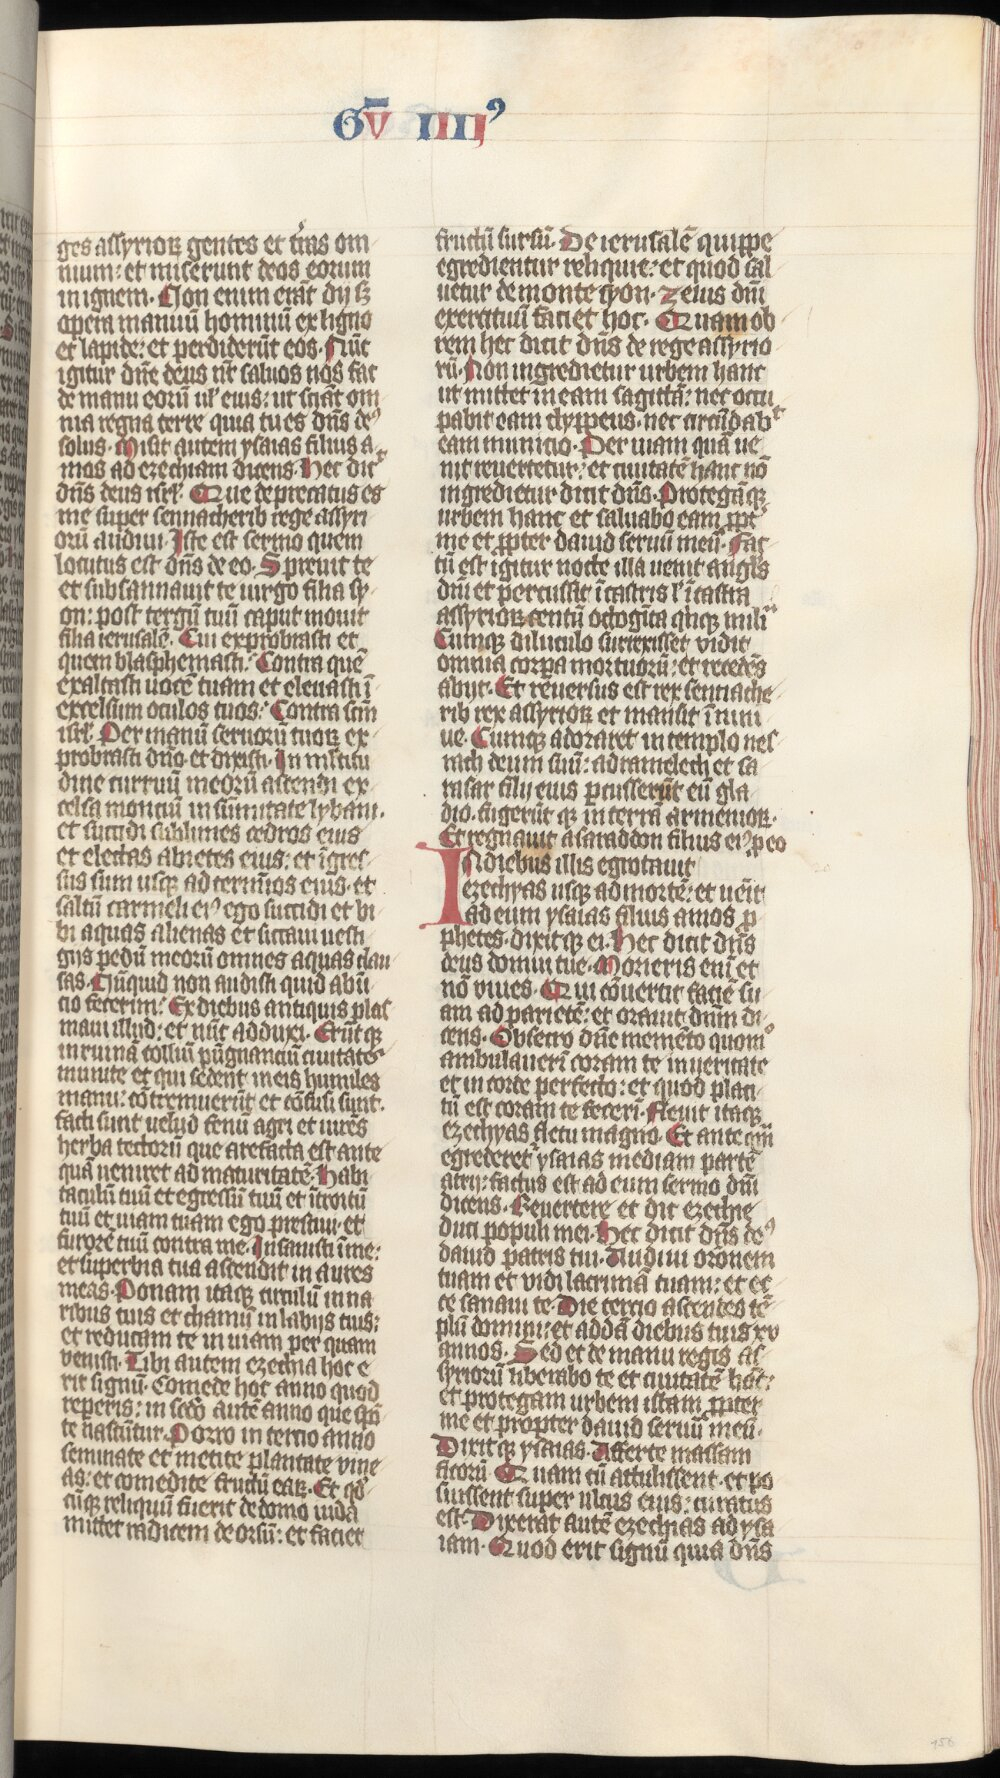 Gū IIIIꝰ
ges assyrioꝝ gentes et t̃ras om
nium: et miserunt deos eorum
in ignem. Non enim erāt dij sꝫ
opera manuū hominū ex ligno
et lapide: et perdiderūt eos. Nūc
igitur dn̄e deus nr̄ saluos nos fac
de manu eorū ul' eius: ut sciāt om
nia regna terre quia tu es dn̄s deꝰ
solus. Misit autem ysaias filius a
mos ad ezechiam dicens. Hec dic̄
dn̄s deus isrl'. Que deprecatus es
me super sennacherib rege assyri
orū audiui. Iste est sermo quem
locutus est dn̄s de eo. Spreuit te
et subsannauit te uirgo filia sy
on: post tergū tuū caput mouit
filia ierusalē. Cui exprobrasti et
quem blasphemasti: Contra quē
exaltasti uocē tuam et eleuasti ī
excelsum oculos tuos: Contra scm̄
isrl'. Per manū seruorū tuoꝝ ex
probrasti dn̄o et dixisti. In ml̄titu
dine curruū meorū ascendi ex
celsa montiū in sūmitate lybani.
et succidi sublimes cedros eius
et electas abietes eius: et īgres
sus sum usqꝫ ad termīos eius et
saltū carmeli eiꝰ ego succidi et bi
bi aquas alienas et siccaui uesti
gijs pedū meorū omnes aquas clau
sas. Nūquid non audisti quid ab īni
cio fecerim: Ex diebus antiquis plas
maui illud: et nūc adduxi. Erūtqꝫ
in ruinā colliū pūgnanciū ciuitates
munite et qui sedent in eis humiles
manu: cōtremuerūt et cōfusi sunt.
facti sunt uelud fenū agri et uirēs
herba tectorū que arefacta est ante
quā ueniret ad maturitatē. Habi
taculū tuū et egressū tuū et ītroitū
tuū et uiam tuam ego presciui et
furorē tuū contra me. Insanisti ī me:
et superbia tua ascendit in aures
meas. Ponam itaqꝫ circulū in na
ribus tuis et chamū in labijs tuis:
et reducam te in uiam per quam
venisti. Tibi autem ezechia hoc e
rit signū. Comede hoc anno quod
reperis: in secdo autē anno que spō
te nascūtur. Porro in tercio anno
seminate et metite plantate vine
as: et comedite fructū eaꝝ. Et qd̄
cūqꝫ reliquū fuerit de domo iuda
mittet radicem deorsū: et faciet
fructū sursū. De ierusalē quippe
egredientur reliquie: et quod sal
uetur de monte syon. Zelus dn̄i
exercituū faciet hoc. Quam ob
rem hec dicit dn̄s de rege assyrio
rū. Non ingredietur urbem hanc
nec mittet in eam sagittā: nec occu
pabit eam clyppeus. nec circūdabᵗ
eam municio. Per uiam quā ue
nit reuertetur: et ciuitatē hanc nō
ingredietur dicit dn̄s. Protegāqꝫ
urbem hanc et saluabo eam ꝓpt̄
me et ꝓpter dauid seruū meū. Fac
tū est igitur nocte illa uenit angl's
dn̄i et percussit ī castris l' ī castra
assyrioꝝ centū octogīta qn̄qꝫ mili
Cumqꝫ diluculo surrexisset vidit
omnia corpa mortuorū: et recedēs
abijt. Et reuersus est rex sennache
rib rex assyrioꝝ et mansit ī nini
ue. Cumqꝫ adoraret in templo nes
rach deum suū: adramelech et sa
rasar filij eius ꝑcusserūt eū gla
dio. fugerūt qꝫ in terrā armenioꝝ.
Et regnauit asaraddon filius eiꝰ ꝑ eo
In diebus illis egrotauit
ezechyas usqꝫ ad mortē: et uēit
ad eum ysaias filius amos ꝓ
phetes. dixitqꝫ ei. Hec dicit dn̄s
deus domui tue. Morieris eni et
nō viues. Qui cōuertit faciē su
am ad parietē: et orauit dn̄m di
cens. Obsecro dn̄e memēto quomº
ambulauerī coram te in ueritate
et in corde perfecto: et quod placi
tū est coram te fecerī. Fleuit itaqꝫ
ezechyas fletu magno. Et ante qm̄
egrederetᵉ ysaias mediam partē
atrij: factus est ad eum sermo dn̄i
dicens. Reuertere et dic ezechie
duci populi mei. Hec dicit dn̄s deꝰ
dauid patris tui. Audiui orōnem
tuam et vidi lacrimā tuam: et ec
ce sanaui te. Die tercio ascendes tē
plū domini: et addā diebus tuis xv
annos. Sed et de manu regis as
syriorū liberabo te et ciuitatē hāc:
et protegam urbem istam ꝓpter
me et propter dauid seruū meū.
Dixitqꝫ ysaias. Afferte massam
ficorū. Quam cū attulissent. et po
suissent super ulcus eius: curatus
est. Dixerat autē ezechias ad ysa
iam. Quod erit signū quia dn̄s
156